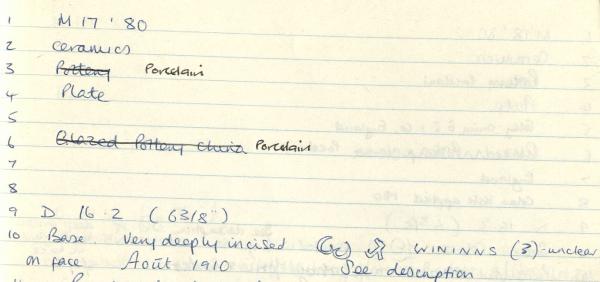 1 M 17 '80
2 Ceramics
3 Pottery Porcelain
4 Plate
5
6 Glazed Pottery china Porcelain
7
8
9 D 16.2 (6 3/8")
10 Base. Very deeply incised WININNS (3) - unclear
on face Août 1910 See description